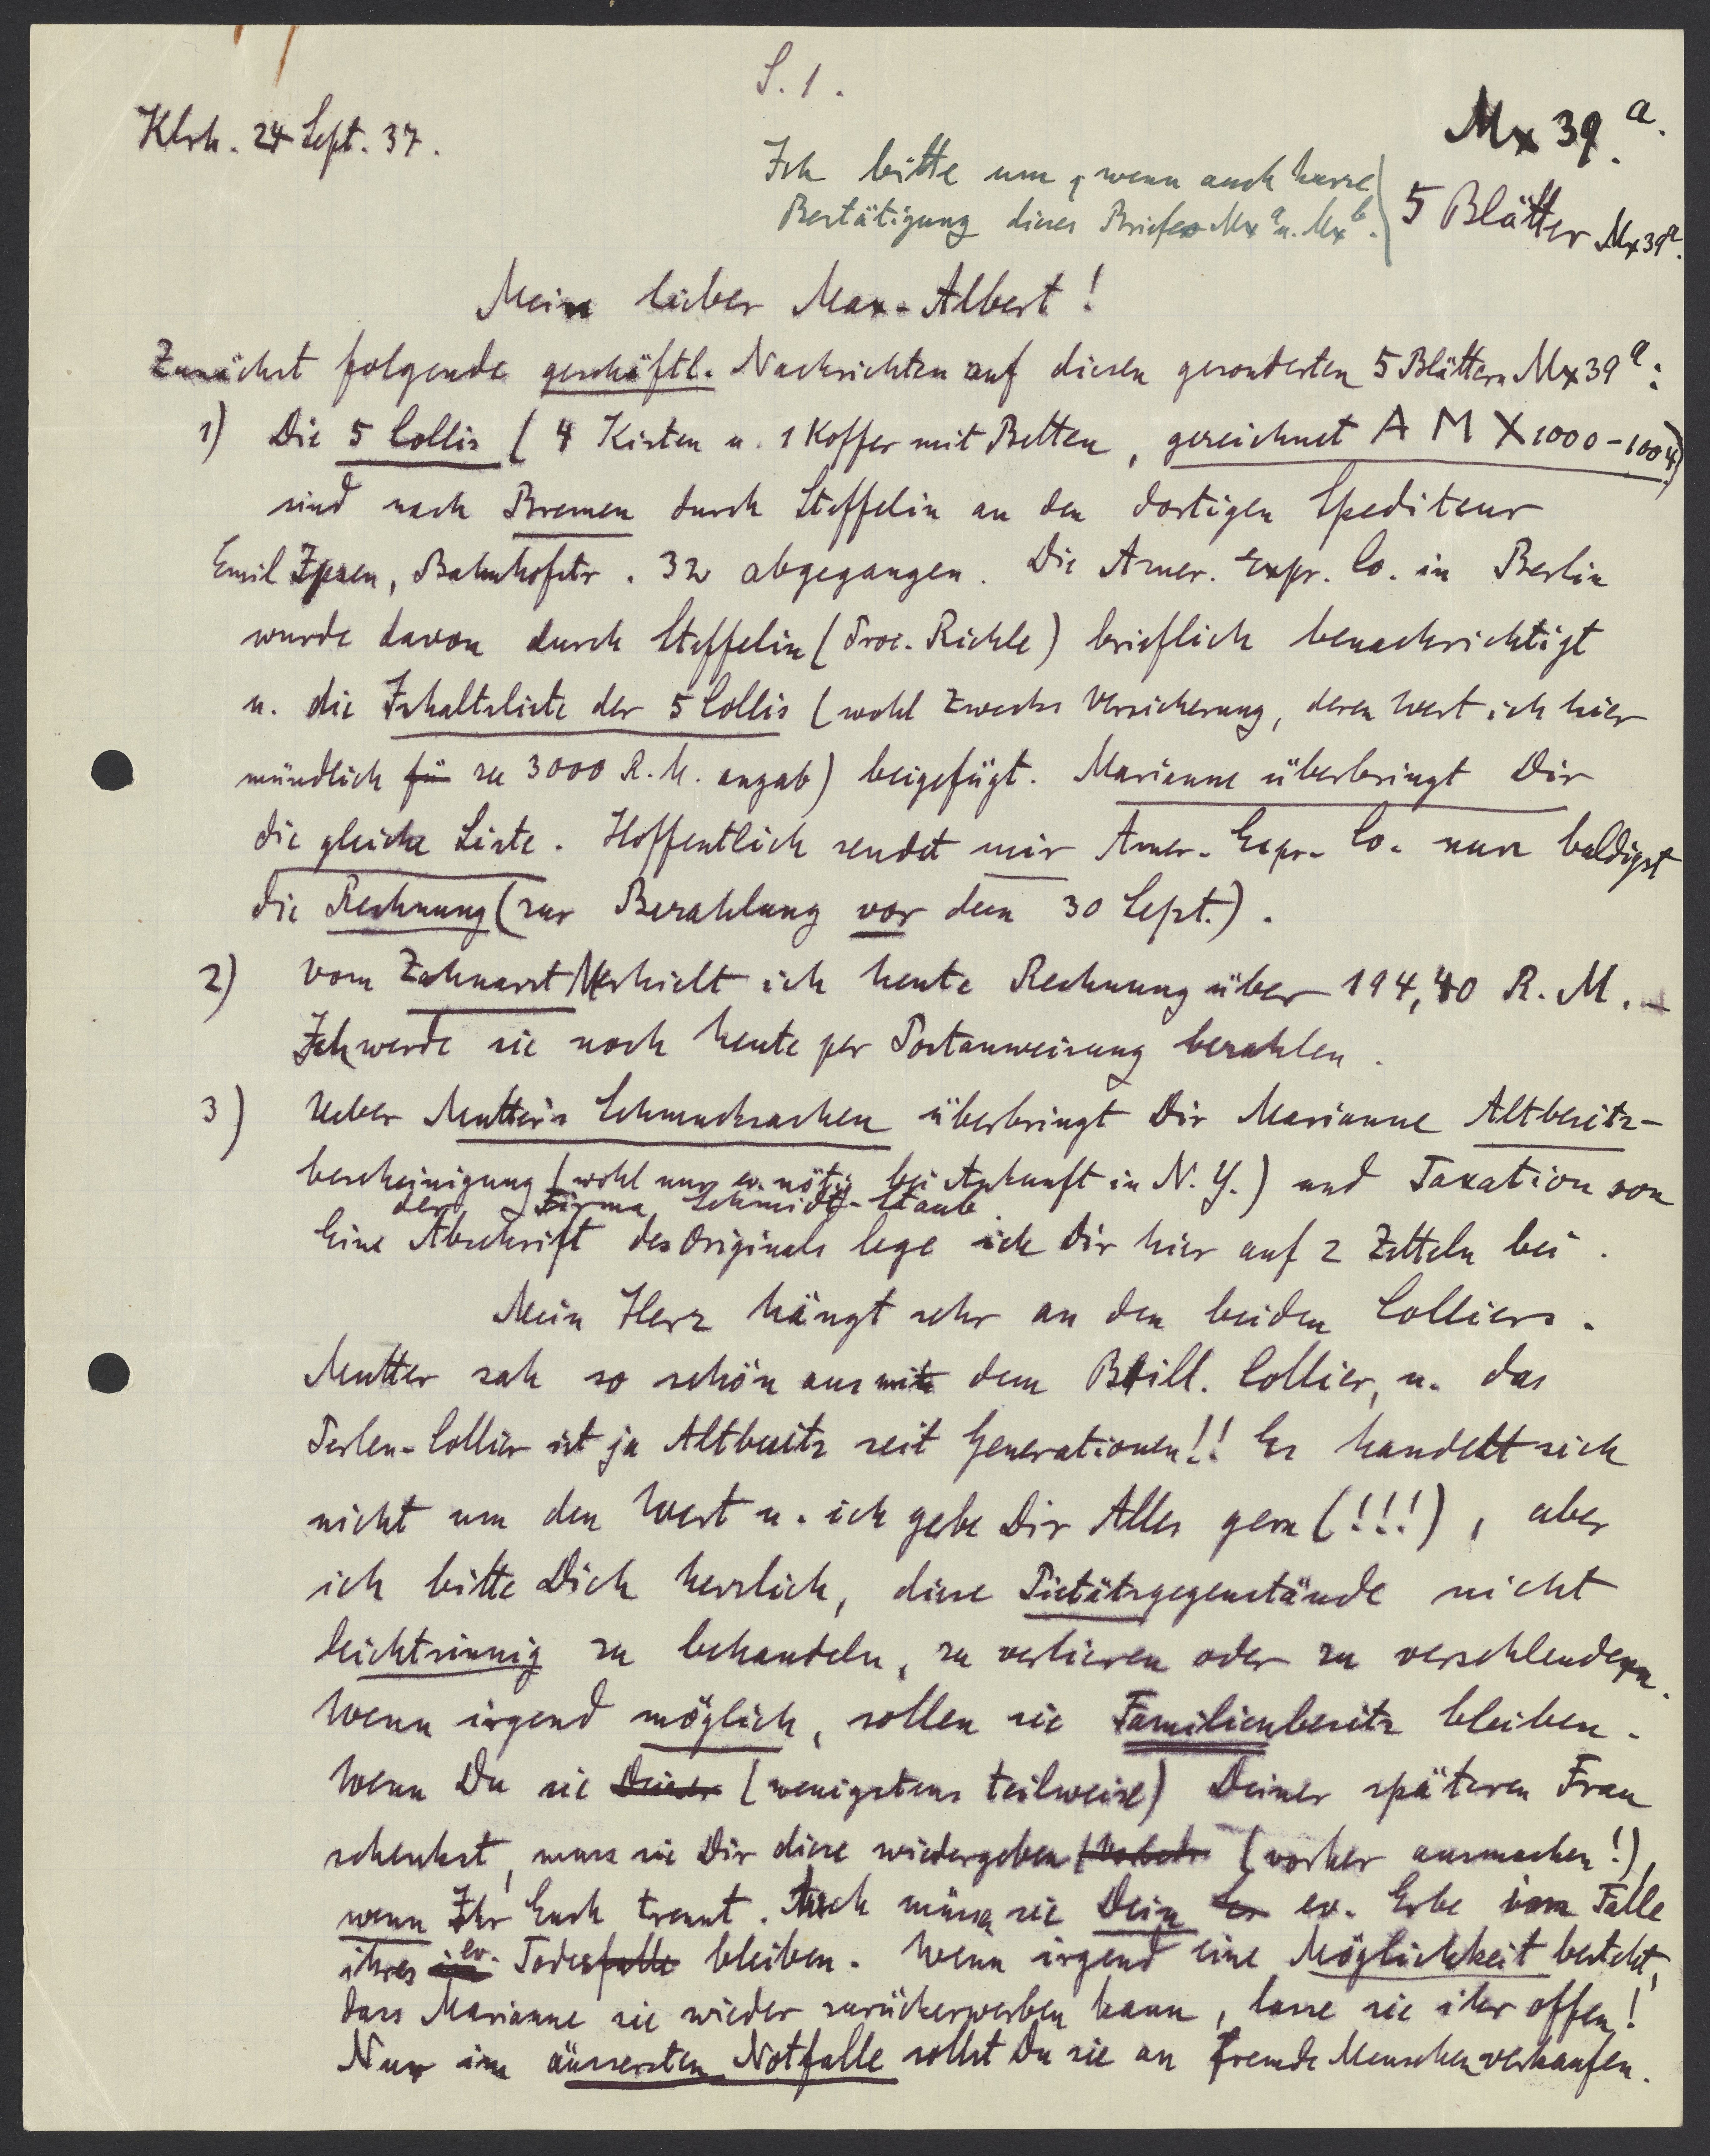 S. 1.
Klrh. 24 Sept. 37.
Mx 39 a.
Ich bitte um, wenn auch kurze
Bestätigung dieses Briefes Mx a u. Mx b.
5 Blätter Mx 39 a.
Mein lieber Max-Albert!
Zunächst folgende geschäftl. Nachrichten auf diesen gesonderten 5 Blättern Mx 39 a:
1) Die 5 Collis (4 Kisten u. 1 Koffer mit Betten, gezeichnet A M X 1000-1004)
sind nach Bremen durch Steffelin an den dortigen Spediteur
Emil Ipsen, Bahnhofstr. 32 abgegangen. Die Amer. Expr. Co. in Berlin
wurde davon durch Steffelin (Proc. Richle) brieflich benachrichtigt
u. die Inhaltsliste der 5 Collis (wohl zwecks Versicherung, deren Wert ich hier
mündlich für zu 3000 R.M. angab) beigefügt. Marianne überbringt Dir
die gleiche Liste. Hoffentlich sendet mir Amer. Expr. Co. nun baldigst
die Rechnung (zur Bezahlung vor dem 30 Sept.).
2) Vom Zahnarzt erhielt ich heute Rechnung über 194,40 R.M. -
Ich werde sie noch heute per Postanweisung bezahlen.
3) Ueber Mutter's Schmucksachen überbringt Dir Marianne Altbesitz-
bescheinigung (wohl nur ev. nötig bei Ankunft in N.Y.) und Taxation von
der Firma Schmidt-Staub.
Eine Abschrift des Originals lege ich Dir hier auf 2 Zetteln bei.
Mein Herz hängt sehr an den beiden Colliers.
Mutter sah so schön aus mit dem Brill. Collier, u. das
Perlen-Collier ist ja Altbesitz seit Generationen!! Es handelt sich
nicht um den Wert u. ich gebe Dir Alles gern (!!!), aber
ich bitte Dich herzlich, diese Pietätsgegenstände nicht
leichtsinnig zu behandeln, zu verlieren oder zu verschleudern.
Wenn irgend möglich, sollen sie Familienbesitz bleiben.
Wenn Du sie Deiner (wenigstens teilweise) Deiner späteren Frau
schenkst, muss sie Dir diese wiedergeben (vorher ausmachen!),
wenn Ihr Euch trennt. Auch müssen sie Dein Er ev. Erbe im Falle
ihres ev. Todesfalle bleiben. Wenn irgend eine Möglichkeit besteht,
dass Marianne sie wieder zurückerwerben kann, lasse sie ihr offen!
Nur im äussersten Notfalle sollst Du sie an fremde Menschen verkaufen.